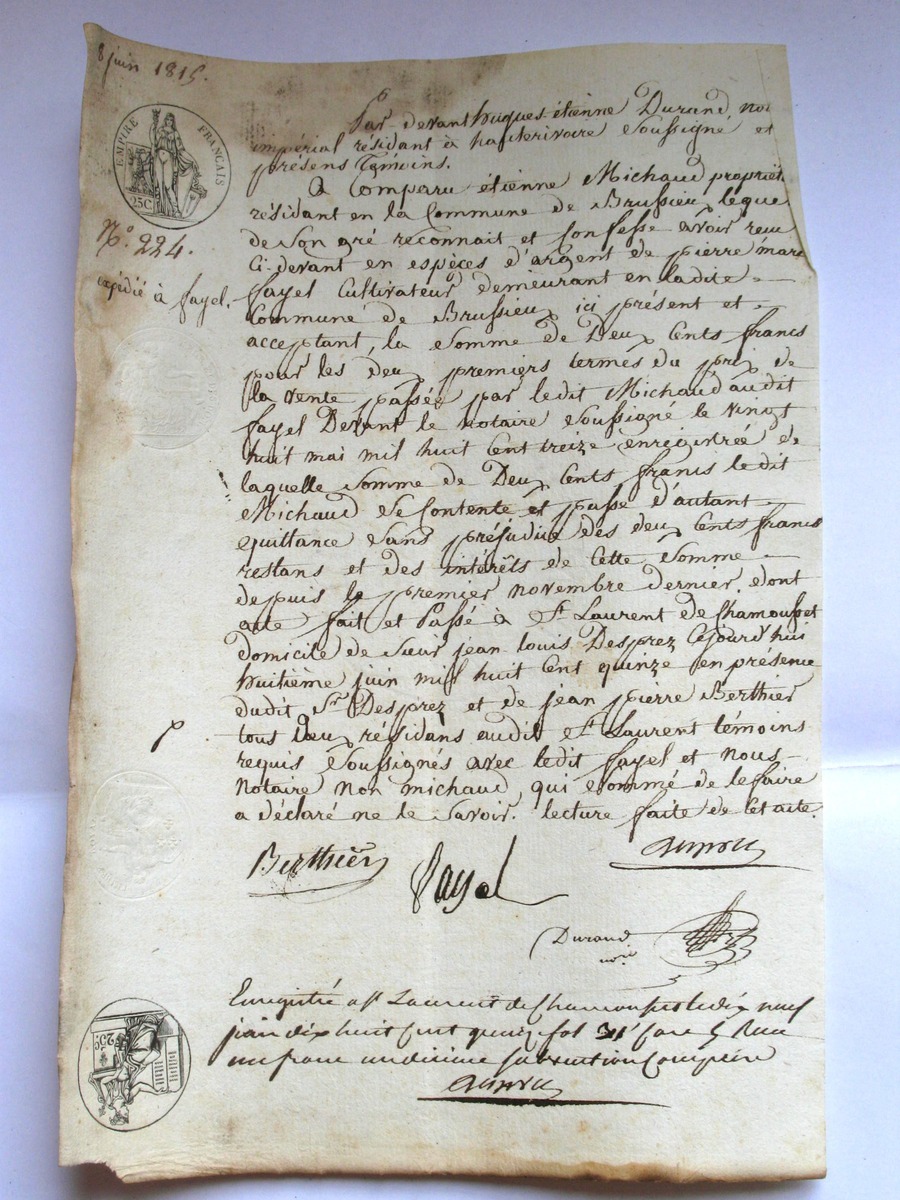 8 juin 1815.
EMPIRE FRANCAIS
25C
N.º 224.
expédié à fayel.
Par devant hugues étienne Durand, no
impérial résidant à hauterivoire soussigné et
présens Témoins.
A Comparu étienne Michaud propriét
résidant en la Commune de Brussieu, leque
de son gré reconnait et confesse avoir reçu
Ci-devant en espèces d'argent de pierre marc
fayel Cultivateur demeurant en ladite
Commune de Brussieu, ici présent et
acceptant, la somme de Deux Cents francs
pour les deux premiers termes du prix de
la vente passée par ledit Michaud audit
fayel Devant le Notaire soussigné le vingt
huit mai mil huit Cent treize enregistrée de
laquelle somme de Deux Cents francs ledit
Michaud se Contente et passe d'autant
quittance sans préjudice des deux Cents francs
restans et des intérêts de Cette somme
depuis le premier novembre dernier. dont
acte fait et Passé à St. Laurent de Chamousset
domicile de sieur jean Louis Desprez Cejourd'hui
huitième juin mil huit Cent quinze en présence
dudit Sr. Desprez et de jean pierre Berthier
tous deux résidans audit St. Laurent témoins
requis soussignés avec ledit fayel et nous
Notaire Non michaud, qui sommé de le faire
a déclaré ne le savoir. lecture faite de Cet acte.
Berthier
fayel
Durand
nore
Enregistré a St Laurent de Chamousset le dix neuf
juin dix huit Cent quinze fol 31 Case 5 Reçu
un franc un dixième subvention Comprise
25C.